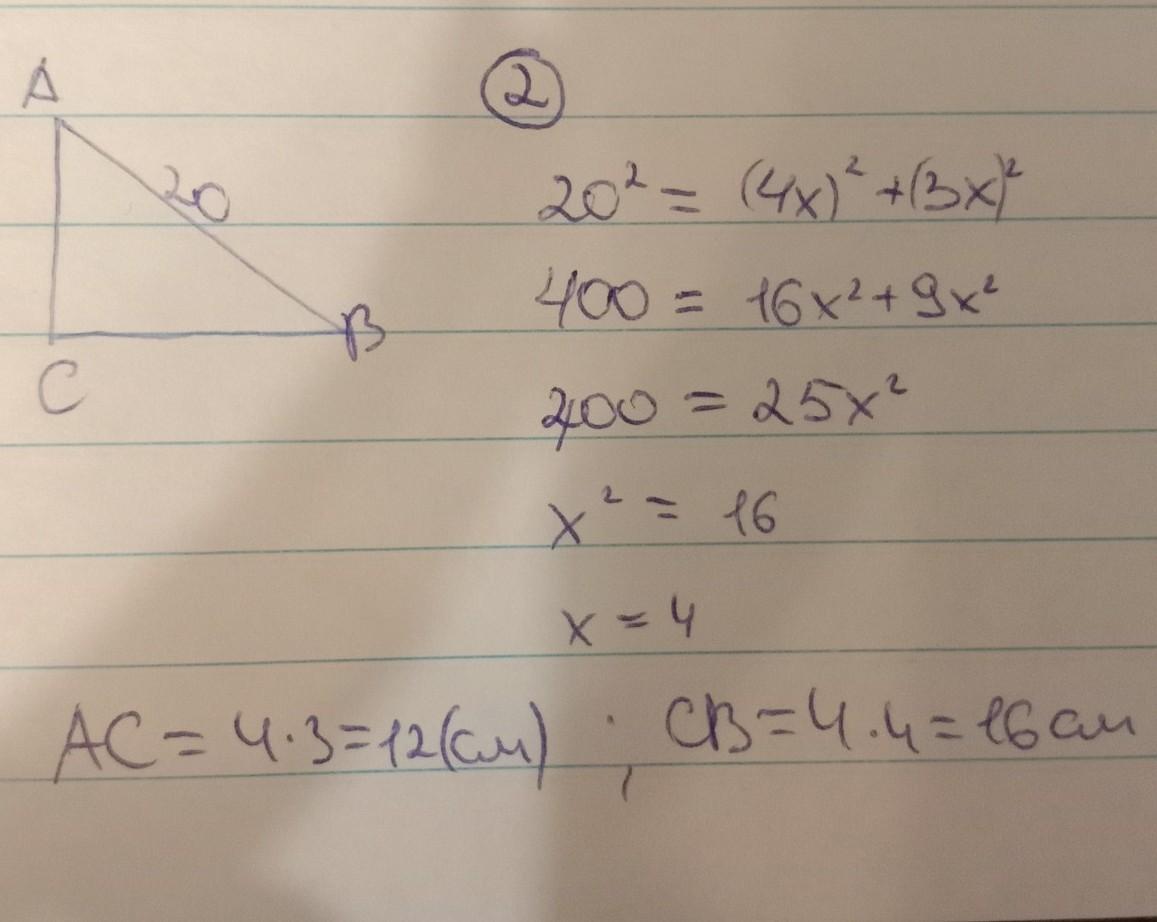 A
20
B
C
2
20² = (4x)² + (3x)²
400 = 16x² + 9x²
400 = 25x²
x² = 16
x = 4
AC = 4·3=12(см) ; CB=4·4=16см